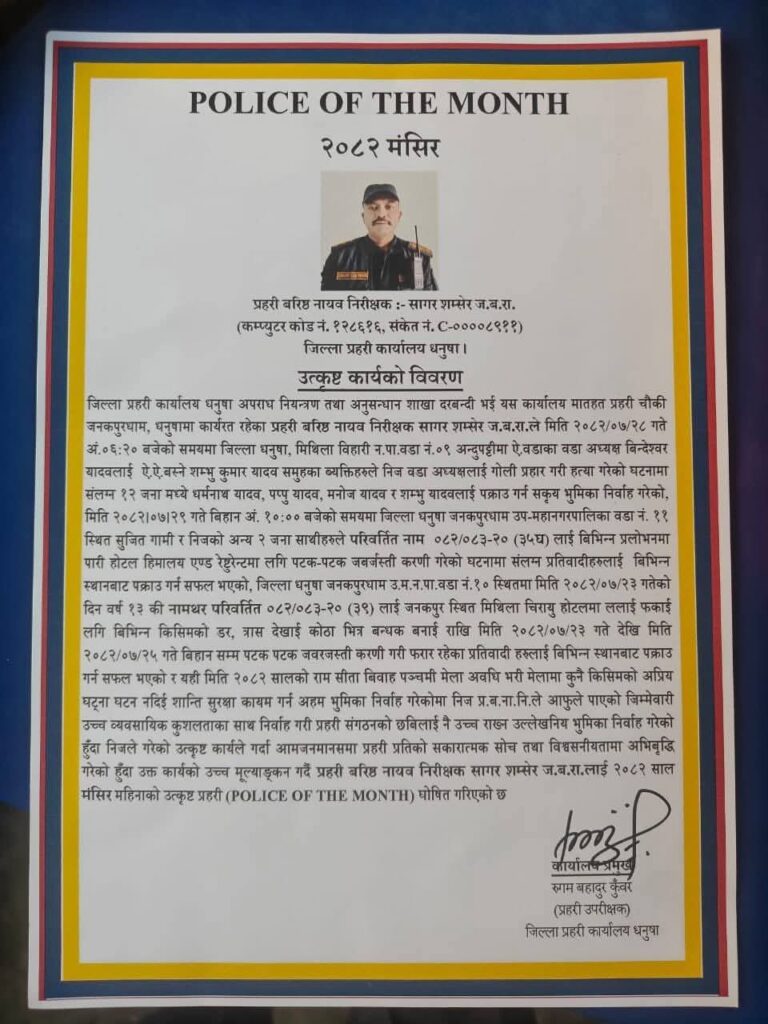 POLICE OF THE MONTH
२०८२ मंसिर
प्रहरी बरिष्ठ नायव निरीक्षक :- सागर शम्सेर ज.ब.रा.
(कम्प्युटर कोड नं. १२८६१६, संकेत नं. C-००००८९११)
जिल्ला प्रहरी कार्यालय धनुषा ।
उत्कृष्ट कार्यको विवरण
जिल्ला प्रहरी कार्यालय धनुषा अपराध नियन्त्रण तथा अनुसन्धान शाखा दरबन्दी भई यस कार्यालय मातहत प्रहरी चौकी
जनकपुरधाम, धनुषामा कार्यरत रहेका प्रहरी बरिष्ठ नायव निरीक्षक सागर शम्सेर ज.ब.रा.ले मिति २०८२/०७/२८ गते
अं.०६:२० बजेको समयमा जिल्ला धनुषा, मिथिला विहारी न.पा.वडा नं.०९ अन्दुपट्टीमा ऐ.वडाका वडा अध्यक्ष बिन्देश्वर
यादवलाई ऐ.ऐ.बस्ने शम्भु कुमार यादव समुहका ब्यक्तिहरुले निज वडा अध्यक्षलाई गोली प्रहार गरी हत्या गरेको घटनामा
संलग्न १२ जना मध्ये धर्मनाथ यादव, पप्पु यादव, मनोज यादव र शम्भु यादवलाई पक्राउ गर्न सकृय भुमिका निर्वाह गरेको,
मिति २०८२।०७।२९ गते बिहान अं. १०:०० बजेको समयमा जिल्ला धनुषा जनकपुरधाम उप-महानगरपालिका वडा नं. ११
स्थित सुजित गामी र निजको अन्य २ जना साथीहरुले परिवर्तित नाम ०८२/०८३-२० (३५घ) लाई बिभिन्न प्रलोभनमा
पारी होटल हिमालय एण्ड रेष्टुरेन्टमा लगि पटक-पटक जबर्जस्ती करणी गरेको घटनामा संलग्न प्रतिवादीहरुलाई बिभिन्न
स्थानबाट पक्राउ गर्न सफल भएको, जिल्ला धनुषा जनकपुरधाम उ.म.न.पा.वडा नं.१० स्थितमा मिति २०८२/०७/२३ गतेको
दिन वर्ष १३ की नामथर परिवर्तित ०८२/०८३-२० (३९) लाई जनकपुर स्थित मिथिला चिरायु होटलमा ललाई फकाई
लगि बिभिन्न किसिमको डर, त्रास देखाई कोठा भित्र बन्धक बनाई राखि मिति २०८२/०७/२३ गते देखि मिति
२०८२/०७/२५ गते बिहान सम्म पटक पटक जवरजस्ती करणी गरी फरार रहेका प्रतिवादी हरुलाई बिभिन्न स्थानबाट पक्राउ
गर्न सफल भएको र यही मिति २०८२ सालको राम सीता बिवाह पञ्चमी मेला अवधि भरी मेलामा कुनै किसिमको अप्रिय
घट्ना घटन नदिई शान्ति सुरक्षा कायम गर्न अहम भुमिका निर्वाह गरेकोमा निज प्र.ब.ना.नि.ले आफुले पाएको जिम्मेवारी
उच्च व्यवसायिक कुशलताका साथ निर्वाह गरी प्रहरी संगठनको छबिलाई नै उच्च राख्न उल्लेखनिय भुमिका निर्वाह गरेको
हुँदा निजले गरेको उत्कृष्ट कार्यले गर्दा आमजनमानसमा प्रहरी प्रतिको सकारात्मक सोच तथा विश्वसनीयतामा अभिबृद्धि
गरेको हुँदा उक्त कार्यको उच्च मूल्याङ्कन गर्दै प्रहरी बरिष्ठ नायव निरीक्षक सागर शम्सेर ज.ब.रा.लाई २०८२ साल
मंसिर महिनाको उत्कृष्ट प्रहरी (POLICE OF THE MONTH) घोषित गरिएको छ
कार्यालय प्रमुख
रुगम बहादुर कुँवर
(प्रहरी उपरीक्षक)
जिल्ला प्रहरी कार्यालय धनुषा